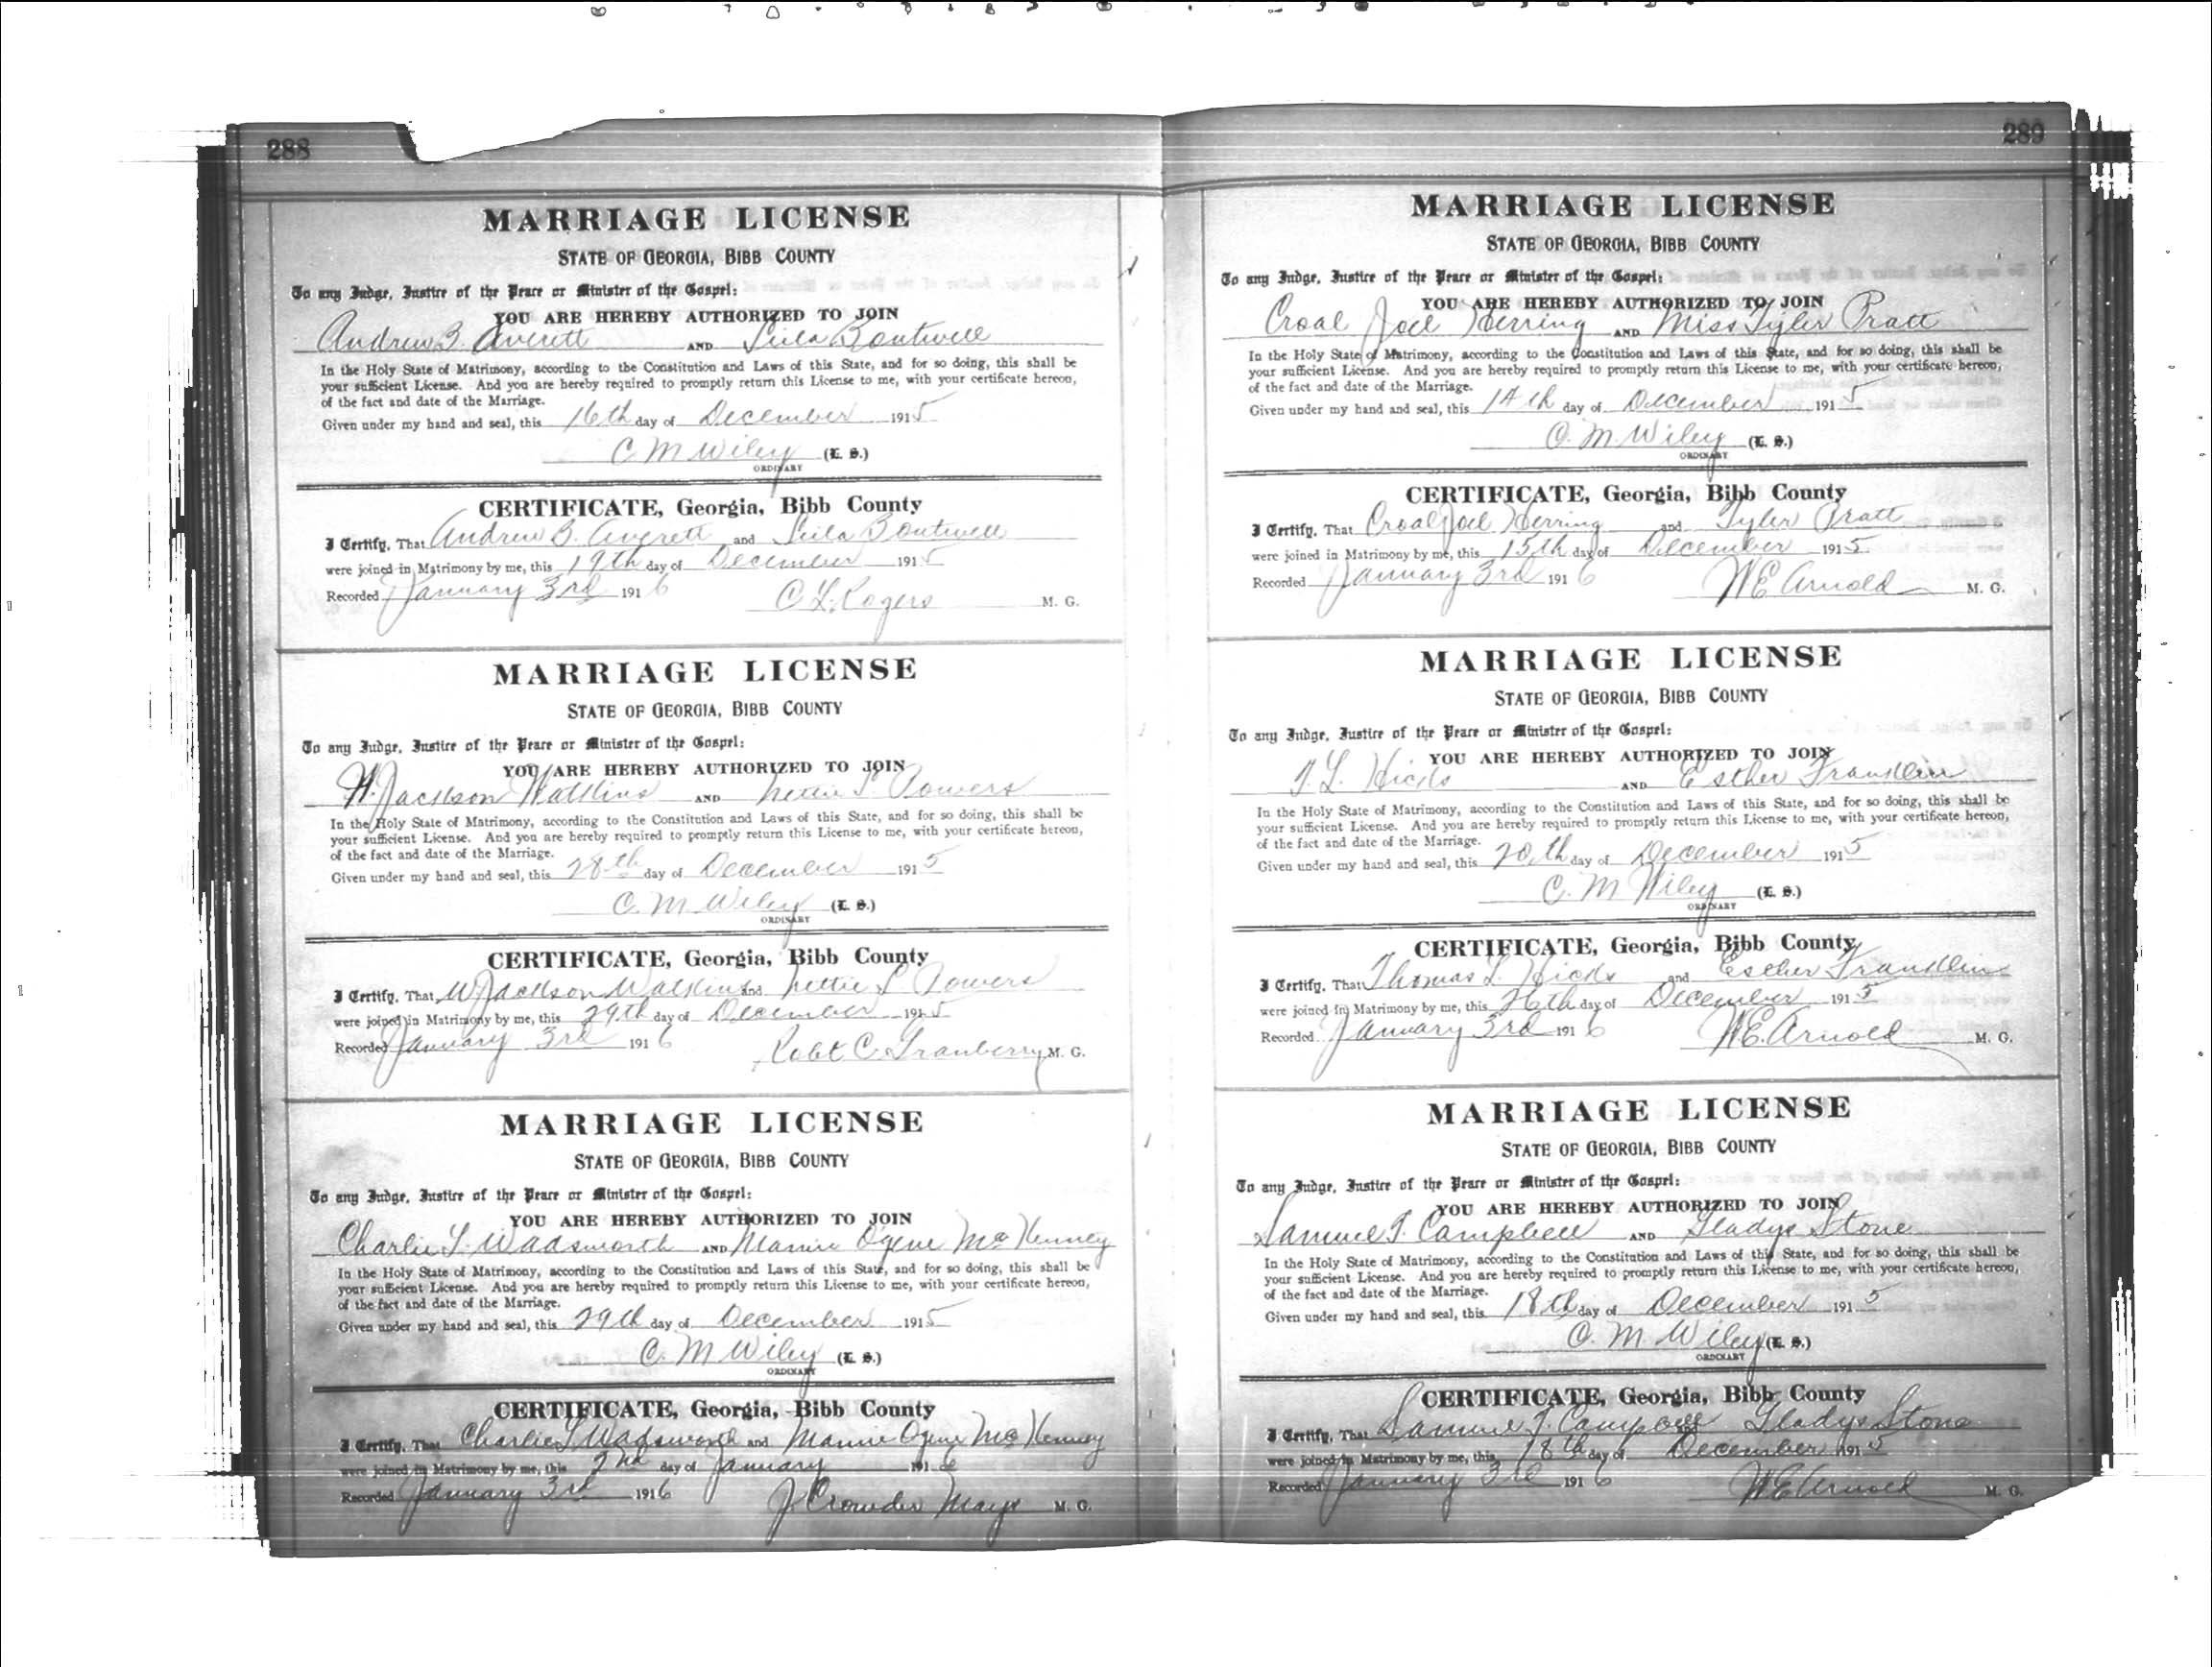 288
MARRIAGE LICENSE
STATE OF GEORGIA, BIBB COUNTY
To any Judge, Justice of the Peace or Minister of the Gospel:
YOU ARE HEREBY AUTHORIZED TO JOIN
Andrew B. Averett AND Leila Boutwell
In the Holy State of Matrimony, according to the Constitution and Laws of this State, and for so doing, this shall be
your sufficient License. And you are hereby required to promptly return this License to me, with your certificate hereon,
of the fact and date of the Marriage.
Given under my hand and seal, this 16th day of December 1915
C M Wiley (L. S.)
ORDINARY
CERTIFICATE, Georgia, Bibb County
I Certify, That Andrew B. Averett and Leila Boutwell
were joined in Matrimony by me, this 19th day of December 1915
Recorded January 3rd 1916 C L. Rogers M. G.
MARRIAGE LICENSE
STATE OF GEORGIA, BIBB COUNTY
To any Judge, Justice of the Peace or Minister of the Gospel:
YOU ARE HEREBY AUTHORIZED TO JOIN
W. Jackson Watkins AND Nettie L. Powers
In the Holy State of Matrimony, according to the Constitution and Laws of this State, and for so doing, this shall be
your sufficient License. And you are hereby required to promptly return this License to me, with your certificate hereon,
of the fact and date of the Marriage.
Given under my hand and seal, this 28th day of December 1915
C. M Wiley (L. S.)
ORDINARY
CERTIFICATE, Georgia, Bibb County
I Certify, That W Jackson Watkins and Nettie L Powers
were joined in Matrimony by me, this 29th day of December 1915
Recorded January 3rd 1916 Robt C. Granberry M. G.
MARRIAGE LICENSE
STATE OF GEORGIA, BIBB COUNTY
To any Judge, Justice of the Peace or Minister of the Gospel:
YOU ARE HEREBY AUTHORIZED TO JOIN
Charlie L. Wadsworth AND Mamie Ogene McKenney
In the Holy State of Matrimony, according to the Constitution and Laws of this State, and for so doing, this shall be
your sufficient License. And you are hereby required to promptly return this License to me, with your certificate hereon,
of the fact and date of the Marriage.
Given under my hand and seal, this 29th day of December 1915
C. M Wiley (L. S.)
ORDINARY
CERTIFICATE, Georgia, Bibb County
I Certify, That Charlie L Wadsworth and Mamie Ogene McKenney
were joined in Matrimony by me, this 2nd day of January 1916
Recorded January 3rd 1916 J. Crowder Mays M. G.
289
MARRIAGE LICENSE
STATE OF GEORGIA, BIBB COUNTY
To any Judge, Justice of the Peace or Minister of the Gospel:
YOU ARE HEREBY AUTHORIZED TO JOIN
Croal Joel Herring AND Miss Tyler Pratt
In the Holy State of Matrimony, according to the Constitution and Laws of this State, and for so doing, this shall be
your sufficient License. And you are hereby required to promptly return this License to me, with your certificate hereon,
of the fact and date of the Marriage.
Given under my hand and seal, this 14th day of December 1915
C. M. Wiley (L. S.)
ORDINARY
CERTIFICATE, Georgia, Bibb County
I Certify, That Croal Joel Herring and Tyler Pratt
were joined in Matrimony by me, this 15th day of December 1915
Recorded January 3rd 1916 W E Arnold M. G.
MARRIAGE LICENSE
STATE OF GEORGIA, BIBB COUNTY
To any Judge, Justice of the Peace or Minister of the Gospel:
YOU ARE HEREBY AUTHORIZED TO JOIN
T. L. Hicks AND Esther Franklin
In the Holy State of Matrimony, according to the Constitution and Laws of this State, and for so doing, this shall be
your sufficient License. And you are hereby required to promptly return this License to me, with your certificate hereon,
of the fact and date of the Marriage.
Given under my hand and seal, this 20th day of December 1915
C. M Wiley (L. S.)
ORDINARY
CERTIFICATE, Georgia, Bibb County
I Certify, That Thomas L. Hicks and Esther Franklin
were joined in Matrimony by me, this 26th day of December 1915
Recorded January 3rd 1916 W.E. Arnold M. G.
MARRIAGE LICENSE
STATE OF GEORGIA, BIBB COUNTY
To any Judge, Justice of the Peace or Minister of the Gospel:
YOU ARE HEREBY AUTHORIZED TO JOIN
Samuel T. Campbell AND Gladys Stone
In the Holy State of Matrimony, according to the Constitution and Laws of this State, and for so doing, this shall be
your sufficient License. And you are hereby required to promptly return this License to me, with your certificate hereon,
of the fact and date of the Marriage.
Given under my hand and seal, this 18th day of December 1915
C. M Wiley (L. S.)
ORDINARY
CERTIFICATE, Georgia, Bibb County
I Certify, That Samuel T. Campbell Gladys Stone
were joined in Matrimony by me, this 18th day of December 1915
Recorded January 3rd 1916 W E Arnold M. G.